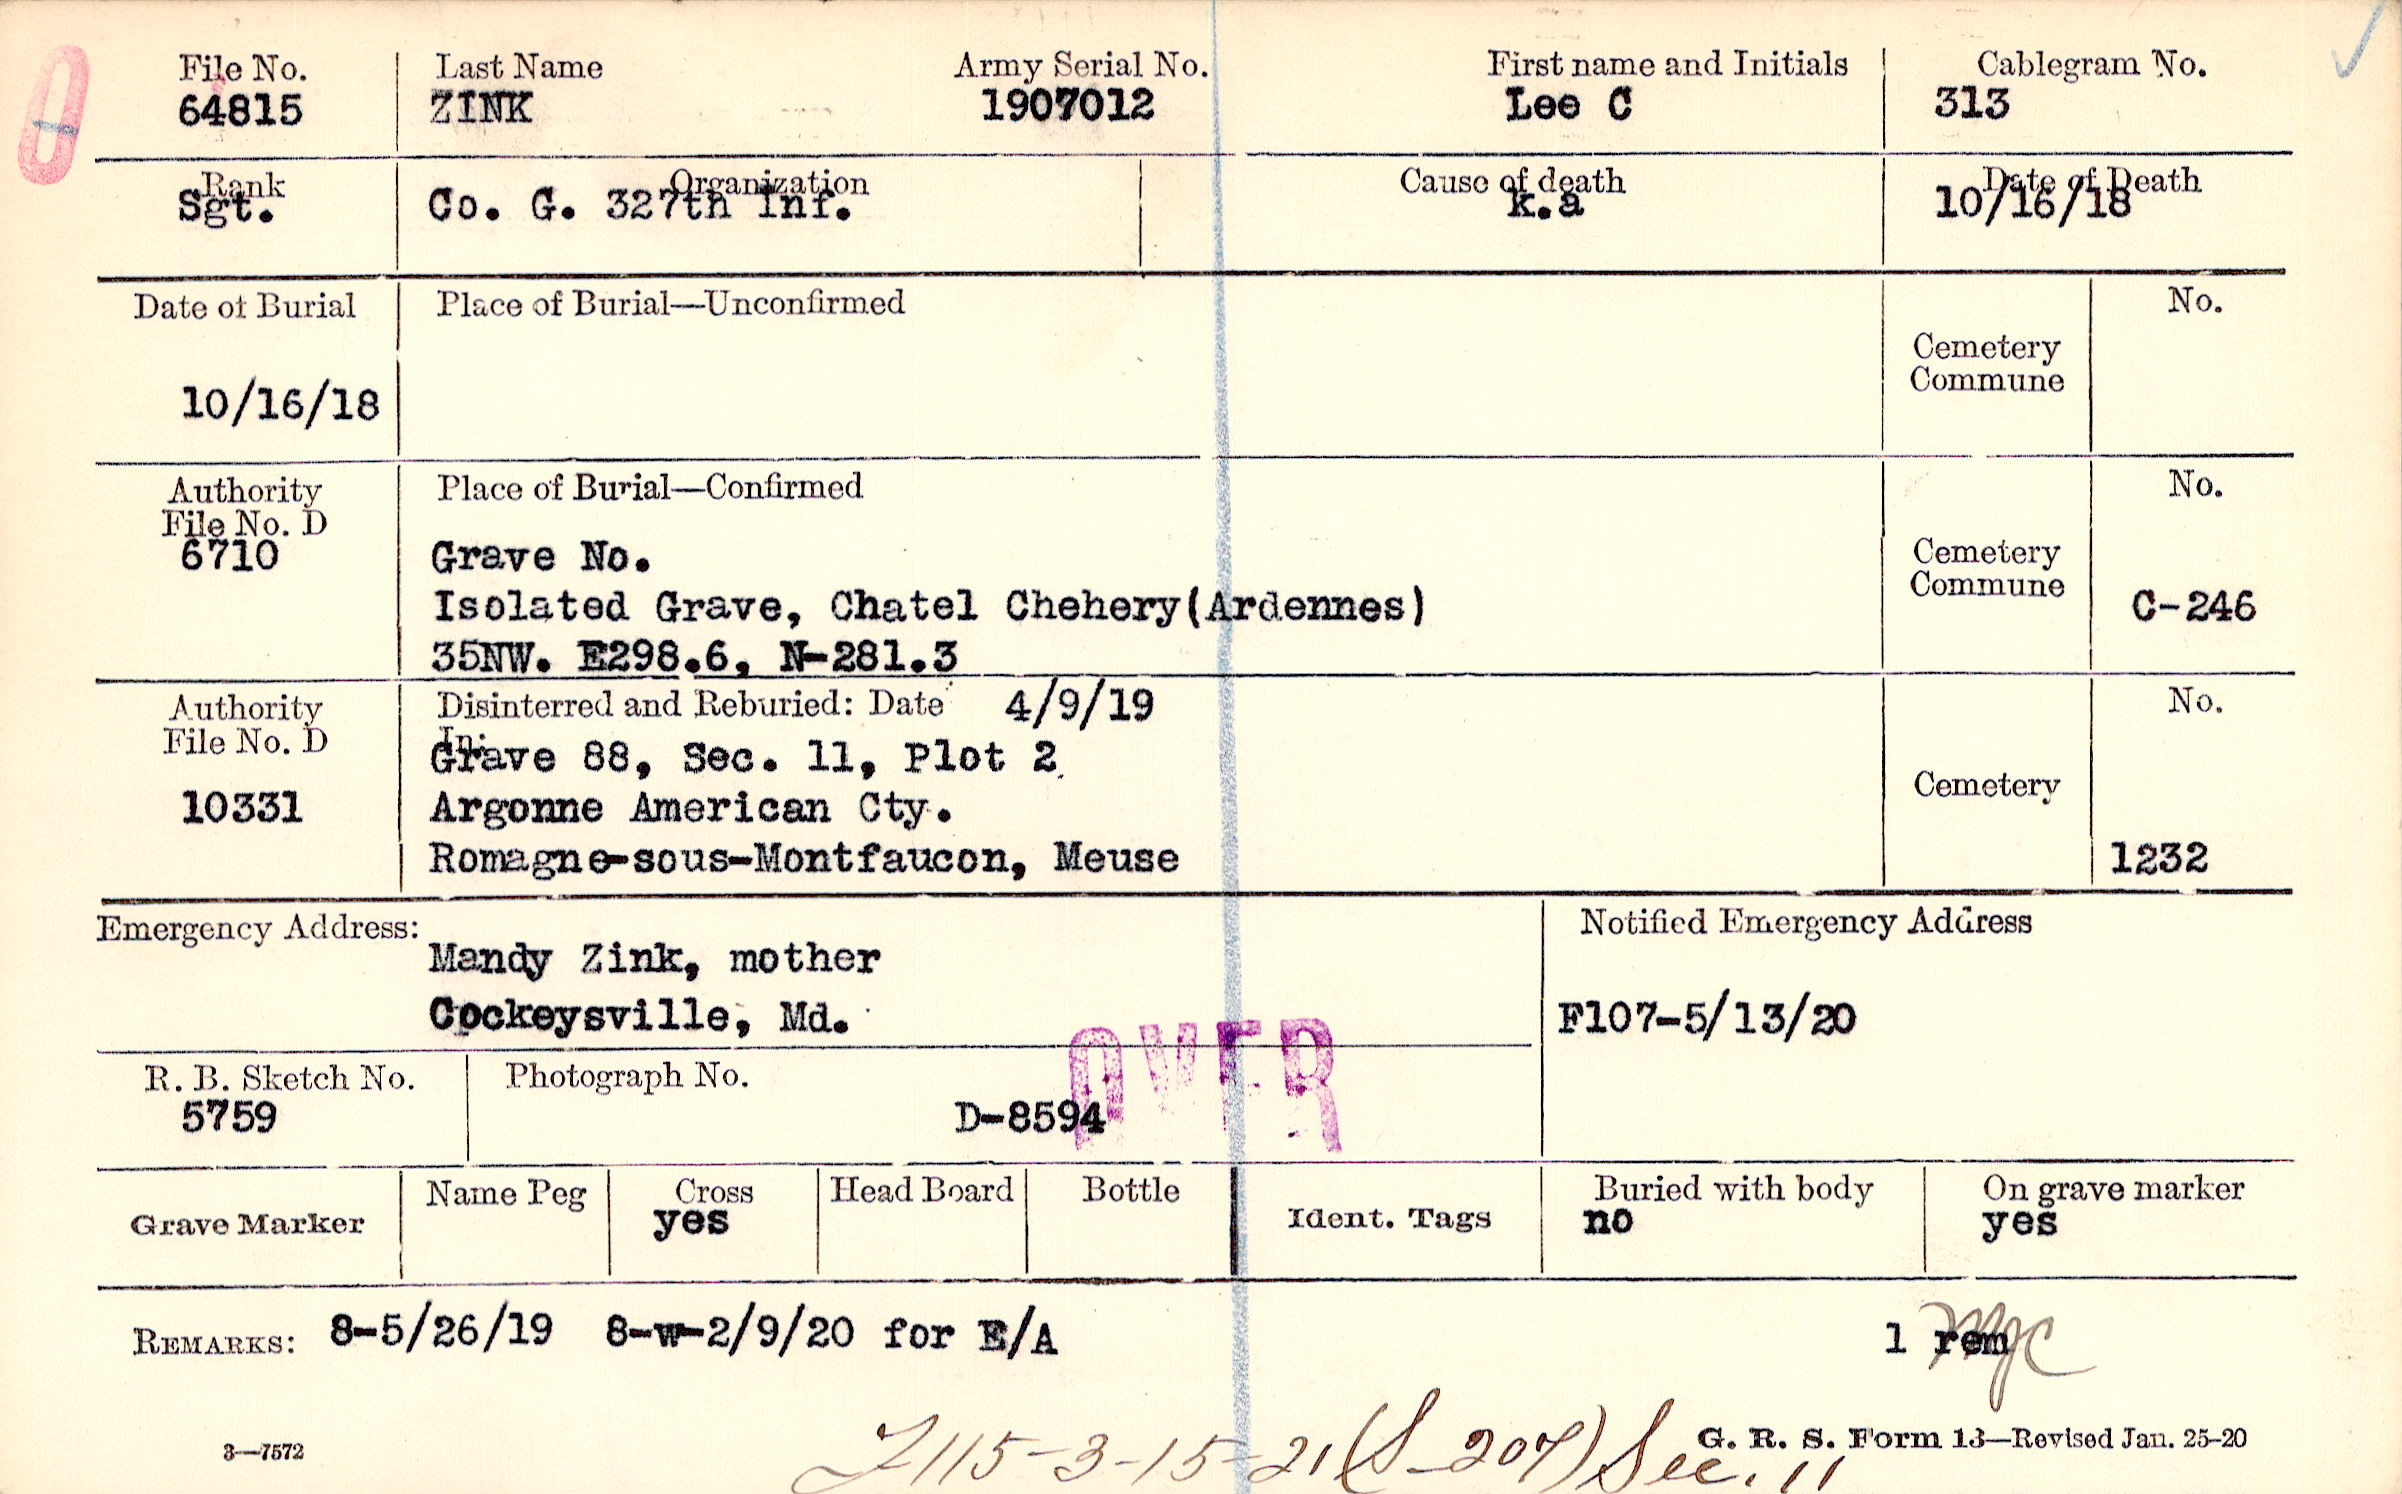 File No. Last Name Army Serial No. First name and Initials Cablegram No.
64815 ZINK 1907012 Lee C 313
Rank Organization Cause of death Date of Death
Sgt. Co. G. 327th Inf. k.a 10/16/18
Date of Burial Place of Burial—Unconfirmed No.
Cemetery
Commune
10/16/18
Authority Place of Burial—Confirmed No.
File No. D
6710 Grave No. Cemetery
Commune
Isolated Grave, Chatel Chehery(Ardennes) C-246
35NW. E298.6, N-281.3
Authority Disinterred and Reburied: Date 4/9/19 No.
File No. D In:
Grave 88, Sec. 11, Plot 2
Cemetery
10331 Argonne American Cty.
Romagne-sous-Montfaucon, Meuse 1232
Emergency Address: Notified Emergency Address
Mandy Zink, mother
Cockeysville, Md. F107-5/13/20
OVER
R. B. Sketch No. Photograph No.
5759 D-8594
Grave Marker Name Peg Cross Head Board Bottle Ident. Tags Buried with body On grave marker
yes no yes
REMARKS: 8-5/26/19 8-w-2/9/20 for E/A 1 rem
3—7572 G. R. S. Form 13—Revised Jan. 25-20
F115-3-15-21 (S-207) Sec. 11